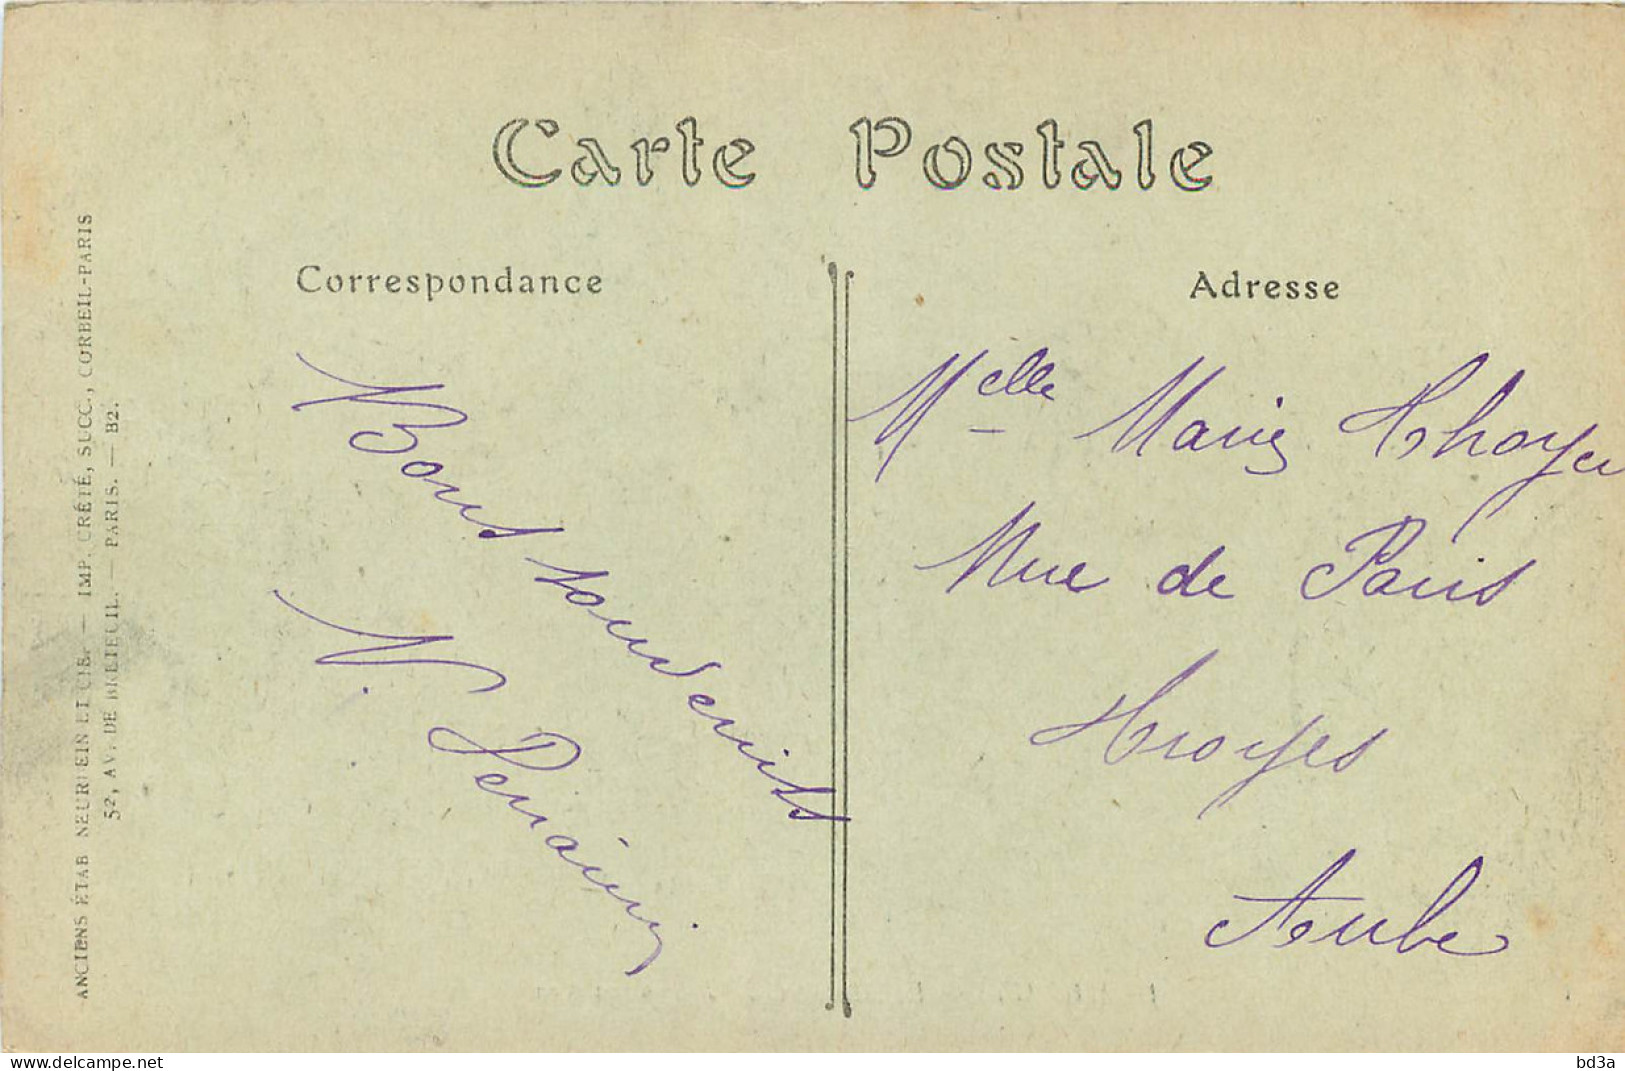 Carte Postale
Correspondance
Adresse
Bons souvenirs
N.
Melle Marie
Rue de Paris
Troyes
Aube
ANCIENS ÉTAB NEURDEIN ET CIE. — IMP. CRÉTÉ, SUCC., CORBEIL-PARIS
52, AV. DE BRETEUIL. — PARIS. — B2.
www.delcampe.net
bd3a